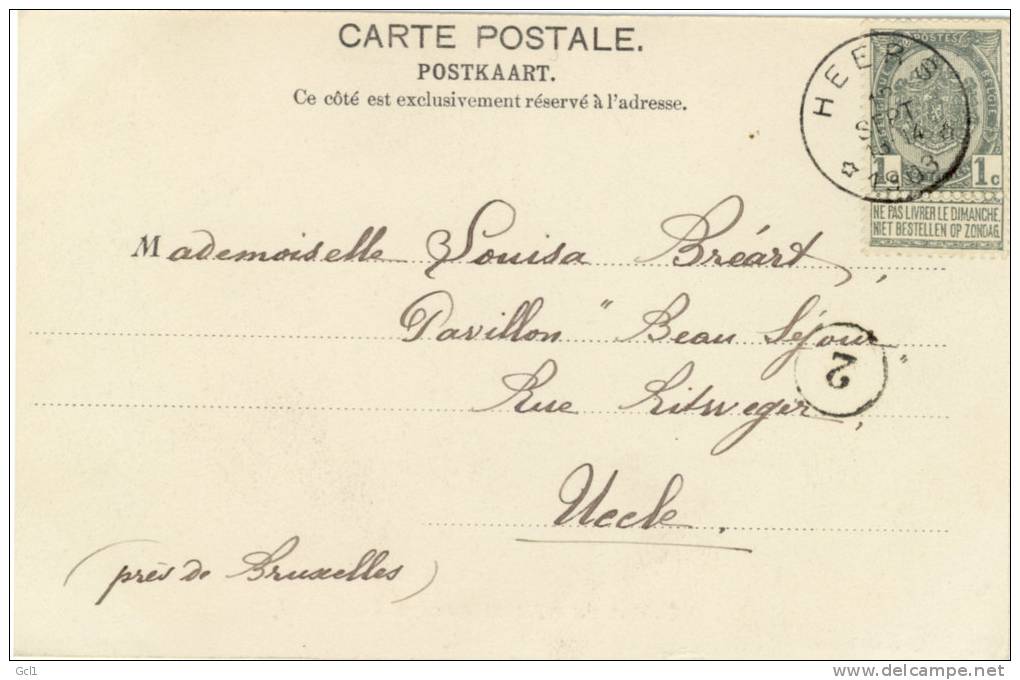 CARTE POSTALE.
POSTKAART.
Ce côté est exclusivement réservé à l'adresse.
HEER
SEPT
1903
POSTES
1 1c
NE PAS LIVRER LE DIMANCHE.
NIET BESTELLEN OP ZONDAG.
Mademoiselle Louisa Bréart,
Pavillon "Beau Séjour"
2
Rue Ritweger,
Uccle.
(près de Bruxelles)
Gc1
www.delcampe.net